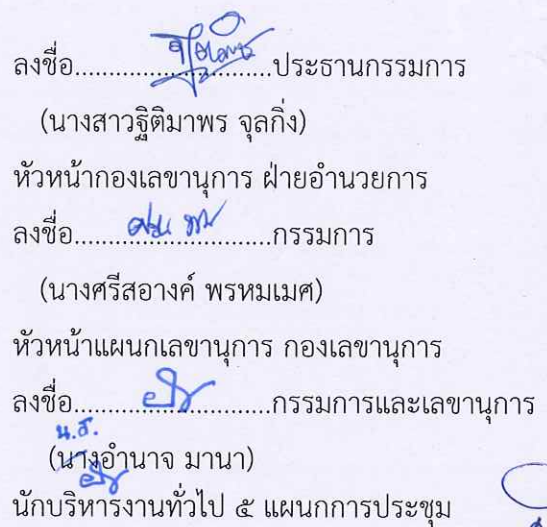 ลงชื่อ...............................ประธานกรรมการ
(นางสาวฐิติมาพร จุลกิ่ง)
หัวหน้ากองเลขานุการ ฝ่ายอำนวยการ
ลงชื่อ...............................กรรมการ
(นางศรีสอางค์ พรหมเมศ)
หัวหน้าแผนกเลขานุการ กองเลขานุการ
ลงชื่อ...............................กรรมการและเลขานุการ
น.ส.
(นางอำนาจ มานา)
นักบริหารงานทั่วไป ๕ แผนกการประชุม